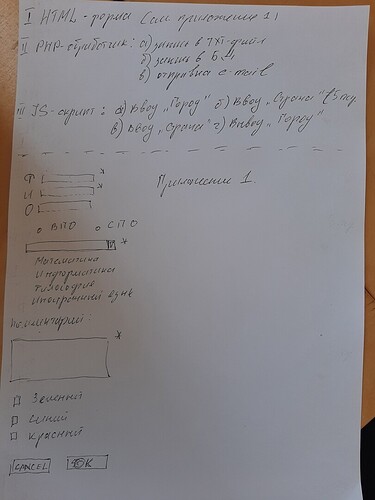 I HTML-форма (см приложение 1)
II PHP-обработчик: а) запись в TXT-файл
б) запись в БД
в) отправка e-mail
III JS-скрипт: а) Ввод "Город" б) Ввод "Страна"
в) Ввод "Страна" г) Вывод "Город"
Приложение 1.
Ф *
И *
О
ВПО СПО
*
Математика
Информатика
Философия
Иностранный язык
Комментарий:
*
Зеленый
Синий
Красный
CANCEL OK